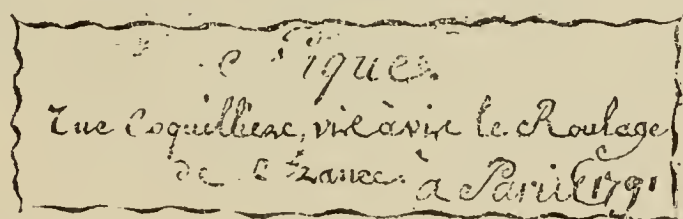 Pique.
rue Coquilliere, vis à vis le Roulage
de France. à Paris 1791